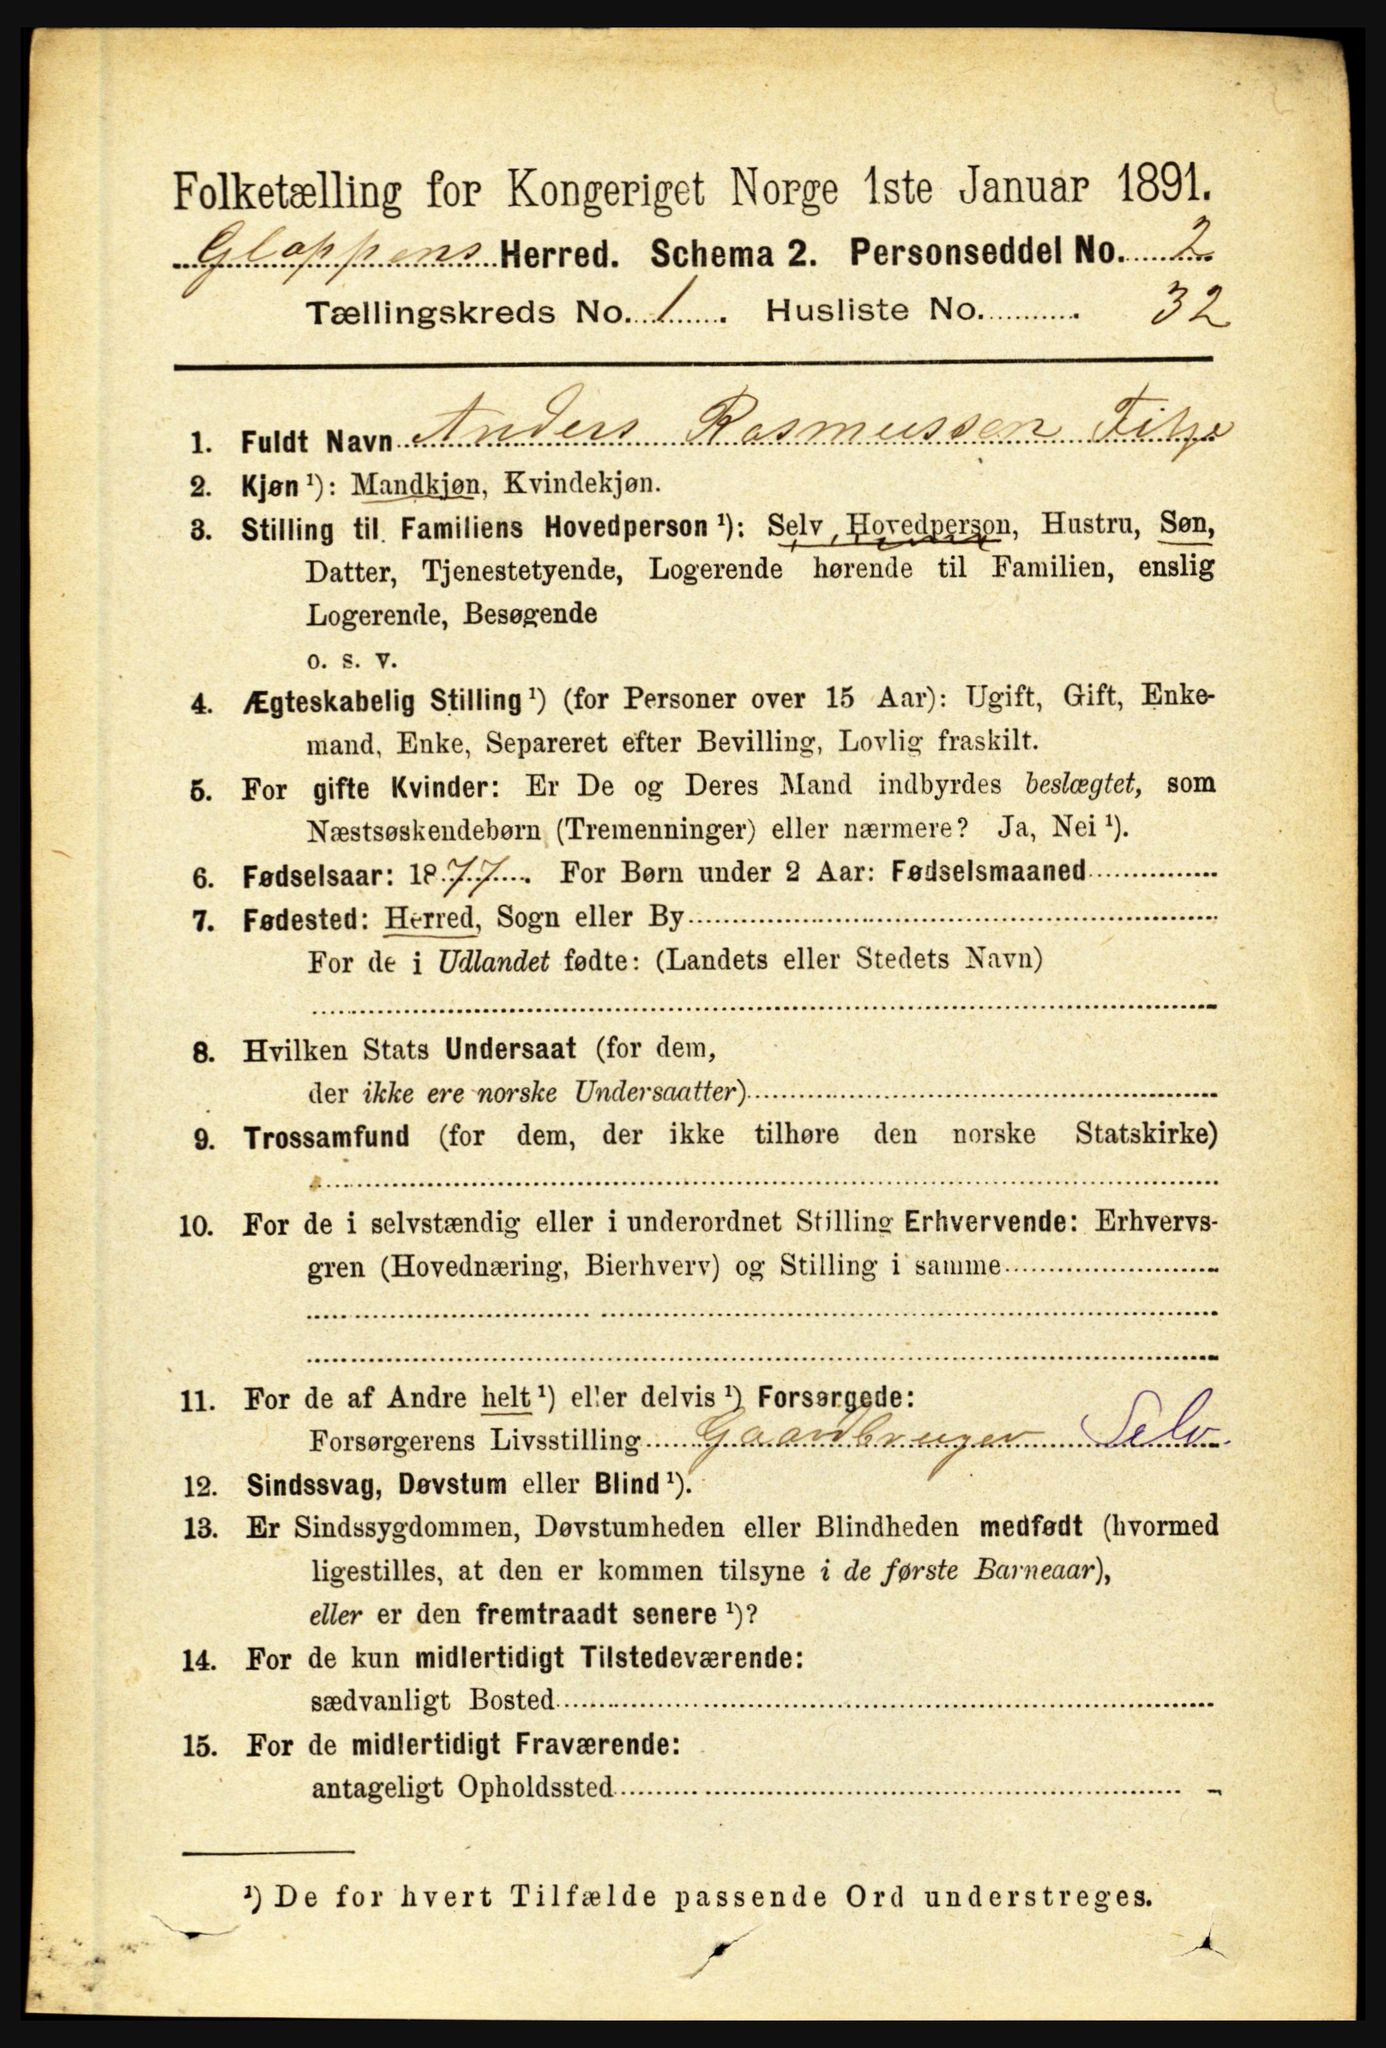 Folketælling for Kongeriget Norge 1ste Januar 1891.
Gloppens Herred. Schema 2. Personseddel No. 2
Tællingskreds No. 1. Husliste No. 32
1. Fuldt Navn Anders Rasmussen
2. Kjøn ¹): Mandkjøn, Kvindekjøn.
3. Stilling til Familiens Hovedperson ¹): Selv, Hovedperson, Hustru, Søn,
Datter, Tjenestetyende, Logerende hørende til Familien, enslig
Logerende, Besøgende
o. s. v.
4. Ægteskabelig Stilling ¹) (for Personer over 15 Aar): Ugift, Gift, Enke-
mand, Enke, Separeret efter Bevilling, Lovlig fraskilt.
5. For gifte Kvinder: Er De og Deres Mand indbyrdes beslægtet, som
Næstsøskendebørn (Tremenninger) eller nærmere? Ja, Nei ¹).
6. Fødselsaar: 1877. For Børn under 2 Aar: Fødselsmaaned
7. Fødested: Herred, Sogn eller By
For de i Udlandet fødte: (Landets eller Stedets Navn)
8. Hvilken Stats Undersaat (for dem,
der ikke ere norske Undersaatter)
9. Trossamfund (for dem, der ikke tilhøre den norske Statskirke)
10. For de i selvstændig eller i underordnet Stilling Erhvervende: Erhvervs-
gren (Hovednæring, Bierhverv) og Stilling i samme
11. For de af Andre helt ¹) eller delvis ¹) Forsørgede:
Forsørgerens Livsstilling Gaardbruger Selv.
12. Sindssvag, Døvstum eller Blind ¹).
13. Er Sindssygdommen, Døvstumheden eller Blindheden medfødt (hvormed
ligestilles, at den er kommen tilsyne i de første Barneaar),
eller er den fremtraadt senere ¹)?
14. For de kun midlertidigt Tilstedeværende:
sædvanligt Bosted
15. For de midlertidigt Fraværende:
antageligt Opholdssted
¹) De for hvert Tilfælde passende Ord understreges.